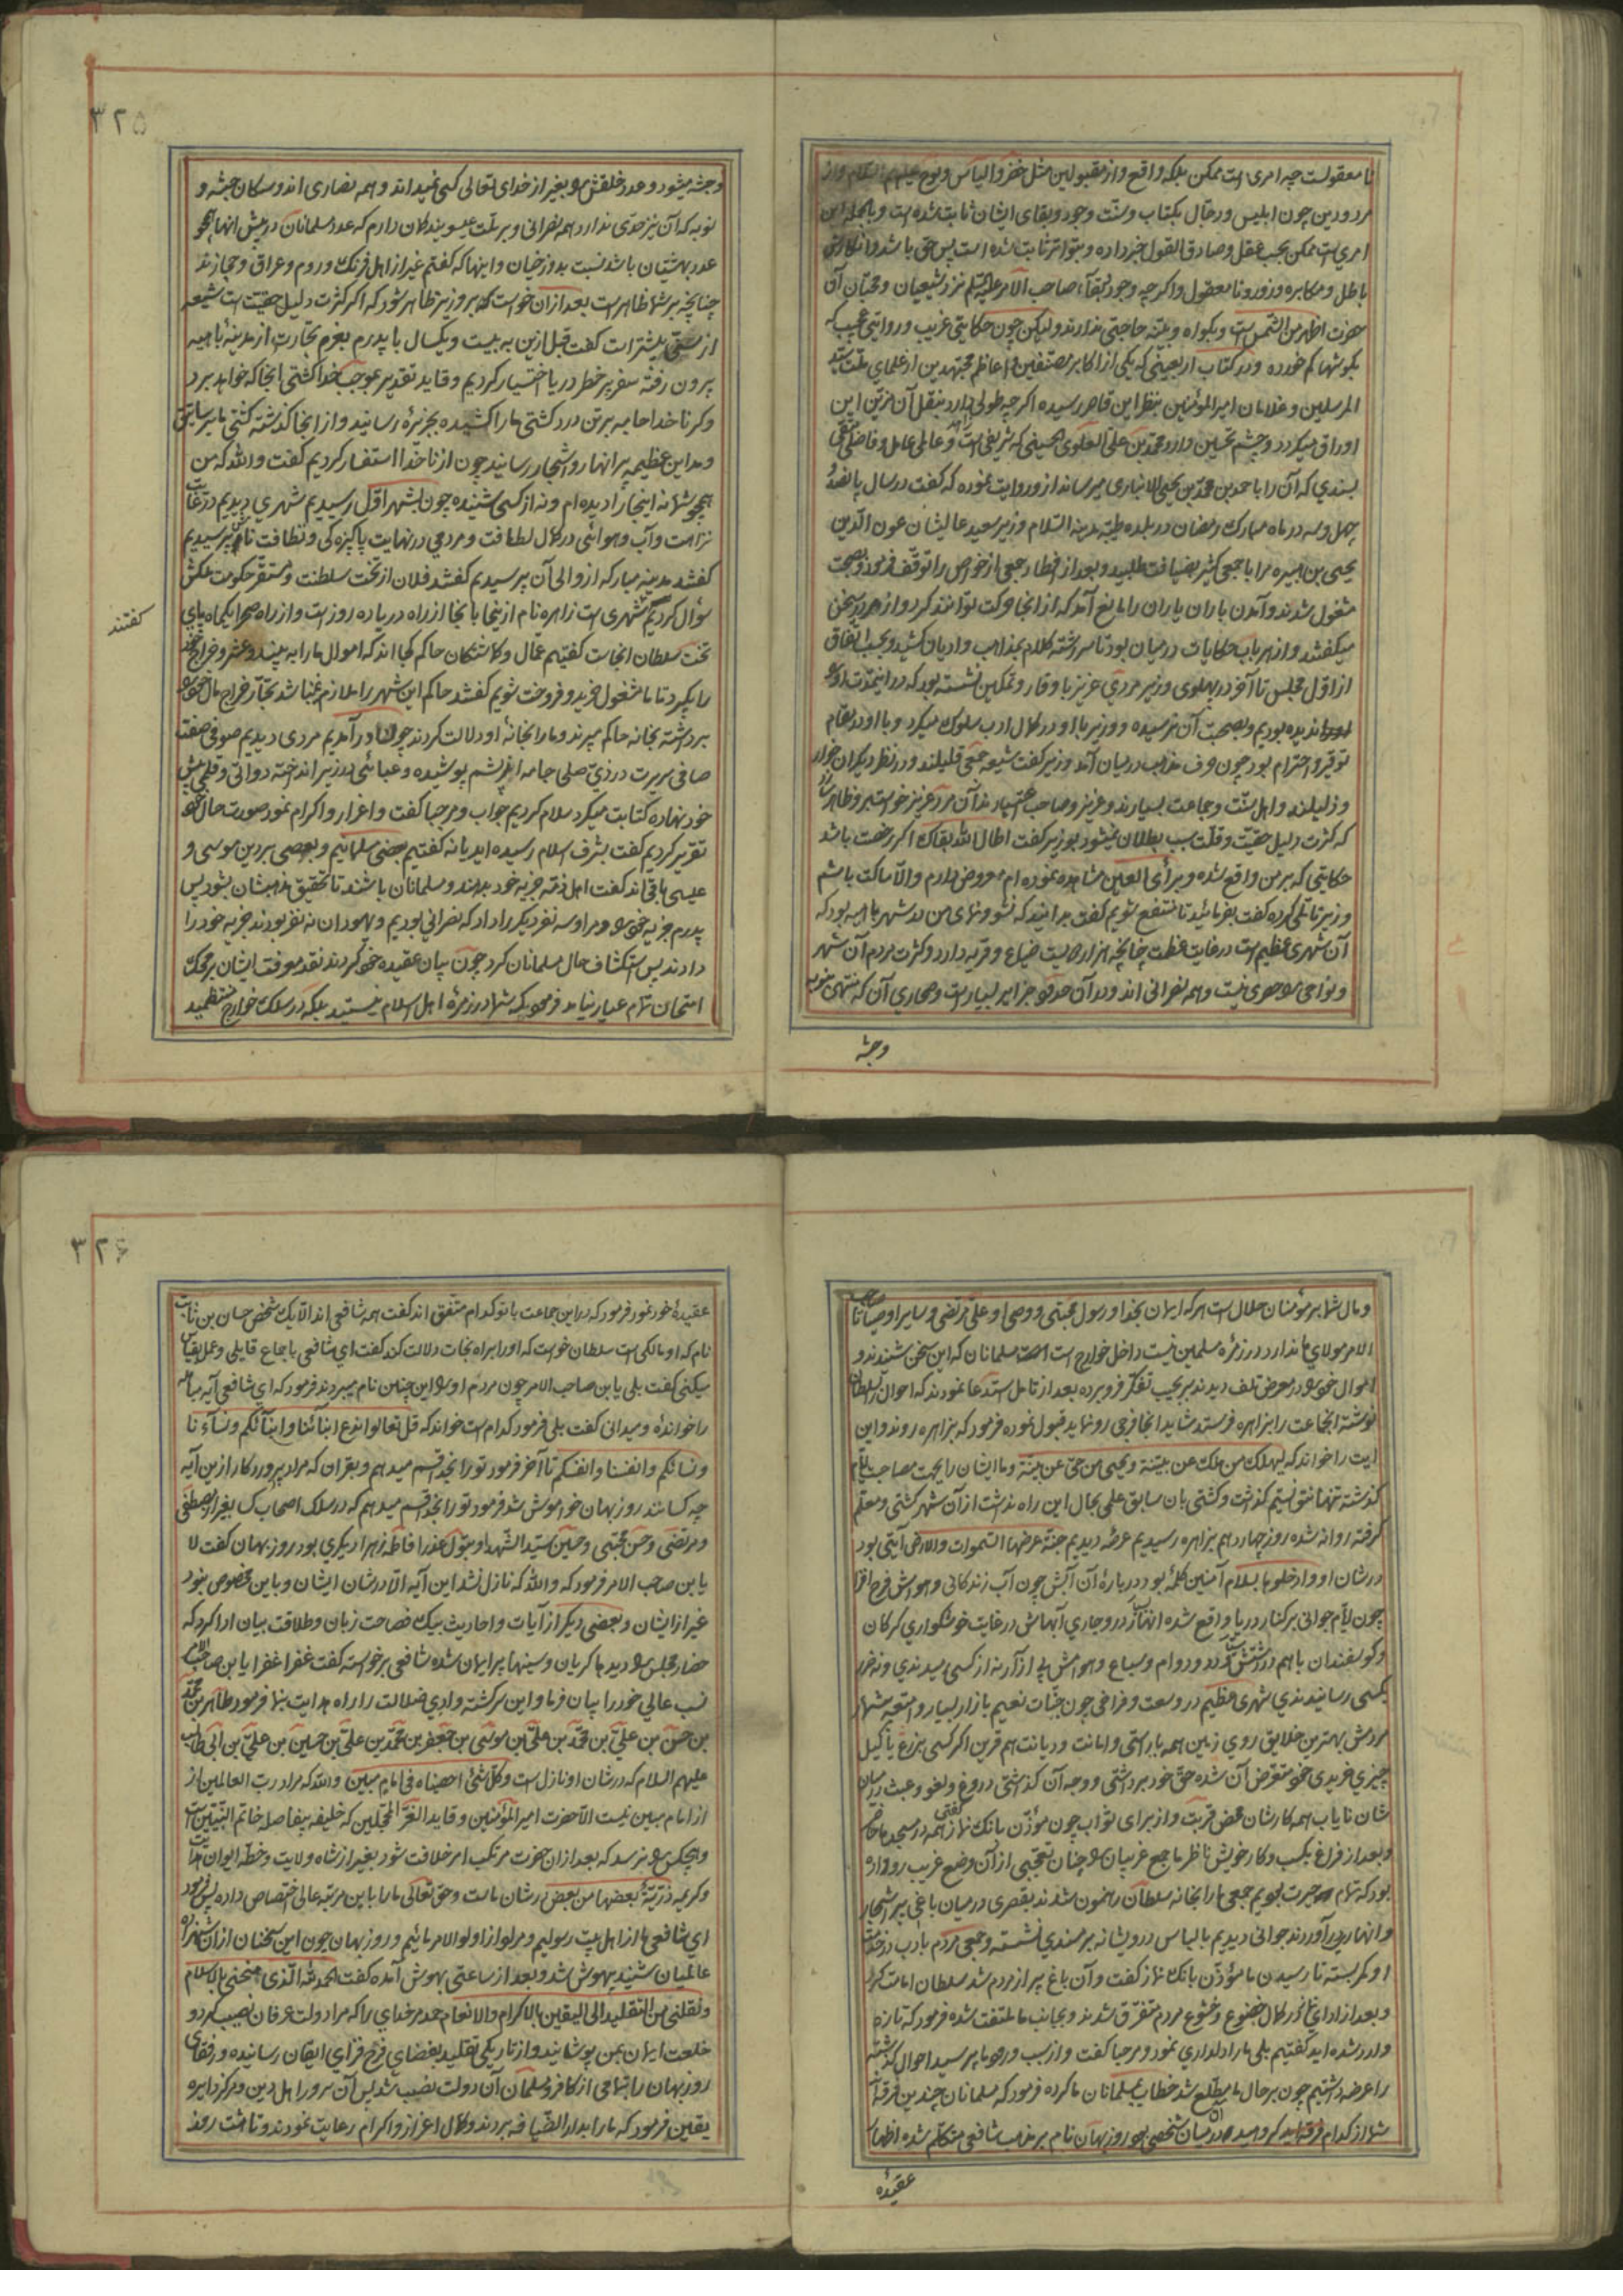 نا معقولست چه امری است ممکن بلکه واقع و از مقبولین مثل خضر و الیاس و نوح علیهم السلام و از
مردودین چون ابلیس و دجّال بکتاب و سنّت وجود و بقای ایشان ثابت شده است و بالجمله این
امریست ممکن بحسب عقل و صادق القول خبر داده و بتواتر ثابت شده است پس حق باشد و انکار آن
باطل و مکابره و زور و نا معقول و اکرچه وجود و بقآء صاحب الامر علیه السّلم نزد شیعیان و محبّان آن
حضرت اظهر من الشمس است و بکواه و بیّنه حاجتی ندارند و لیکن چون حکایتی غریب و روایتی عجیب که
بکوشها کم خورده و در کتاب اربعینی که یکی از اکابر مصنفین و اعاظم مجتهدین از علمای ملّت سیّد
المرسلین و غلامان امیر المؤمنین بنظر این قاصر رسیده اکرچه طولی دارد بنقل آن مزیّن این
اوراق میکردد و چشم تحسین دارد محمّد بن علی العلوی الحسینی که شریفی زاهد و عالمی عامل و فاضلی متّقی
بسندی که آن را باحمد بن محمّد بن یحیی الانباری میرساند از و روایت نموده که کفت در سال پانصد و
چهل و سه در ماه مبارک رمضان در بلده طیّبه مدینه السّلام وزیر سعید عالیشان عون الدّین
یحیی بن هبیره مرا با جمعی کثیر بضیافت طلبید و بعد از افطار جمعی از خواص را توقّف فرمود و بصحبت
مشغول شدند و آمدن باران یاران را مانع آمد که از انجا حرکت توانند کرد و از هر در سخن
میکفتند و از هر باب حکایات در میان بود تا سر رشته کلام بمذاهب و ادیان کشید و بحسب اتفاق
از اول مجلس تا آخر در پهلوی وزیر مردی عزیز با وقار و تمکین نشسته بود که در اینمدّت او را
ندیده بودیم و بصحبت آن نرسیده و وزیر با او در کمال ادب سلوک میکرد و با او در مقام
توقیر و احترام بود چون حرف مذهب در میان آمد وزیر کفت شیعه جمعی قلیلند و در نظر دیکران خوار
و ذلیلند و اهل سنّت و جماعت بسیارند و عزیز و صاحب اعتبارند آن مرد عزیز خواست بر و ظاهر سازد
که کثرت دلیل حقیّت و قلّت سبب بطلان نمیشود بوزیر کفت اطال اللّه بقاک اکر رخصت باشد
حکایتی که بر من واقع شده و برأی العین مشاهده نموده ام معروض دارم و الّا ساکت باشم
وزیر تأمّلی کرده کفت بفرمائید تا منتفع شویم کفت بدانید که نشو و نمای من در شهر باهیه بود که
آن شهری عظیم است در غایت عظمت چنانچه هزار و دویست ضیاع و قریه دارد و کثرت مردم آن شهر
و نواحی را حصری نیست و همه نصرانی اند و در آن حدود جزایر بسیار است و صحاری آن که منتهی بنوبه
وحبشه
۳۲۵
و حبشه میشود و عدد خلقش را بغیر از خدای تعالی کسی نمیداند و همه نصاری اند و سکان حبشه و
نوبه که آن نیز حدّی ندارد همه نصرانی و بر ملّت عیسویند کمان دارم که عدد مسلمانان در پیش آنها همچو
عدد بهشتیان باشد نسبت بدوزخیان و اینها که کفتم غیر از اهل فرنک و روم و عراق و حجازند
چنانچه بر شما ظاهر است بعد از ان خواست که بر وزیر ظاهر شود که اکر کثرت دلیل حقیّت است شیعه
از سنّی بیشتر است کفت قبل ازین به بیست و یکسال با پدرم بعزم تجّارت از مدینهٔ باهیه
برون رفته سفر پر خطر دریا اختیار کردیم و قاید تقدیر بموجب خدا کشتی انجا که خواهد برد
و کر ناخدا جامه بر تن درد کشتی ما را کشیده بجزیرهٔ رسانید و از انجا کذشته کشتی ما بر بساتین
و مداین عظیمه پر انهار و اشجار رسانید چون از ناخدا استفسار کردیم کفت واللّه که من
همچو شما نه اینجا را دیده ام و نه از کسی شنیده چون بشهر اوّل رسیدیم شهری دیدیم در غایت
نزاهت و آب و هوائی در کمال لطافت و مردمی در نهایت پاکیزه کی و نظافت نامش پرسیدیم
کفتند مدینه مبارکه از والی آن پرسیدیم کفتند فلان از تخت سلطنت و مستقرّ حکومت ملکش
سؤال کردیم شهری است زاهره نام از اینجا بانجا از راه دریا ده روز است و از راه صحرا یکماه پای
کفتند
تخت سلطان انجاست کفتیم عمّال و کماشتکان حاکم کجا اند که اموال ما را به بینند و عشر و خراج خود
را بکیرد تا ما مشغول خرید و فروخت شویم کفتند حاکم این شهر را ملازم نمیباشد تجّار خراج مال خود را
برداشته بخانه حاکم میبرند و ما را بخانهٔ او دلالت کردند چون در آمدیم مردی دیدیم صوفی صفت
صافی سریرت در زیّ صلحا جامه از پشم پوشیده و عبائی در زیر انداخته دواتی و قلمی پیش
خود نهاده کتابت میکرد سلام کردیم جواب و مرحبا کفت و اعزاز و اکرام نمود صورت حال خود را
تقریر کردیم کفت بشرف اسلام رسیده اید یا نه کفتیم بعضی مسلمانیم و بعضی بر دین موسی و
عیسی باقی اند کفت اهل ذمّه جزیه خود بدهند و مسلمانان باشند تا تحقیق مذهبشان بشود پس
پدرم جزیه خود و مرا و سه نفر دیکر را داد که نصرانی بودیم و یهودان نه نفر بودند جزیه خود را
دادند پس استکشاف حال مسلمانان کرد چون بیان عقیده خود کردند نقد معرفت ایشان بر محک
امتحان تمام عیار نیامد فرمود که شما در زمرهٔ اهل اسلام نیستید بلکه در سلک خوارج منتظمید
و مال شما بر مؤمنان حلال است هر که ایمان بخدا و رسول مجتبی و وصی او علی مرتضی و سایر اوصیا تا صاحب
الامر مولای ما ندارد در زمرهٔ مسلمین نیست داخل خوارج است مسلمانان که این سخن شنیدند و
اموال خود را در معرض تلف دیدند سر بجیب تفکّر فرو برده بعد از تأمل استدعا نمودند که احوال بسلطان
نوشته انجماعت را بزاهره فرستد شاید انجا فرجی رو نماید قبول نموده فرمود که بزاهره روند و این
ایت را خواند که لیهلک من هلک عن بیّنة و یحیی من حیّ عن بیّنة و ما ایشان را بجهت مصاحبت ایّام
کذشته تنها نتوانستیم کذاشت و کشتی بان سابق علمی بحال این راه نداشت از آن شهر کشتی و معلّم
کرفته روانه شده روز چهاردهم بزاهره رسیدیم عرصهٔ دیدیم جنّة عرضها السّموات و الارض آیتی بود
در شان او و ادخلوها بسلام آمنین کلمهٔ بود در بارهٔ آن آبش چون آب زندکانی و هوایش فرح افزا
چون ایّام جوانی بر کنار دریا واقع شده انهار در و جاری آبهاش در غایت خوشکواری کرکان
و کوسفندان با هم در و دوام و سباع و هوامش بی آزار نه از کسی میدندی و نه ضرر
بکسی رسانیدندی شهری عظیم در وسعت و فراخی چون جنّات نعیم بازار بسیار و امتعه بیشمار
مردمش بهترین خلایق روی زمین همه براستی و امانت و دیانت هم قرین اکر کسی بزرع یا کیل
چیزی خریدی خود متعرض آن شده حقّ خود برداشتی و وجه آن کذاشتی دروغ و لغو و عبث در میان
شان نایاب همه کارشان محض قربت و از برای ثواب چون مؤذّن بانک نماز کفتی همه در مسجد حاضر
و بعد از فراغ بکسب و کار خویش ناظر ما جمع غریبان را چنان تعجّبی از آن وضع غریب رو داده
بود که تمام حیرت بودیم جمعی ما را بخانه سلطان رهنمون شدند بقصری در میان باغی پر اشجار
و انهار در آوردند جوانی دیدیم با لباس درویشانه بر مسندی نشسته و جمعی مردم با ادب در خدمت
او کمر بسته تا رسیدن ما مؤذّن بانک نماز کفت و آن باغ پر از مردم شد سلطان امامت کرد
و بعد از ادای نماز در کمال خضوع و خشوع مردم متفرّق شدند و بجانب ما ملتفت شده فرمود که تازه
وارد شده اید کفتیم بلی ما را دلداری نمود و مرحبا کفت و از سبب ورود ما پرسید احوال کذشته
را عرضه داشتیم چون بر حال ما مطّلع شد خطاب بمسلمانان ما کرده فرمود که مسلمانان چندین فرقه اند
شما از کدام فرقه اید در میان شخصی بود روزبهان نام بر مذهب شافعی متکلّم شده اظهار
عقیدهٔ
۳۲۶
عقیدهٔ خود نمود فرمود که در این جماعت با تو کدام متّفق اند کفت همه شافعی اند الّا یک شخص حسان بن ثابت
نام که او مالکی است سلطان خواست که او را براه نجات دلالت کند کفت ای شافعی باجماع قایلی و عمل بقیاس
میکنی کفت بلی یا بن صاحب الامر چون مردم او را این چنین نام میبردند فرمود که ای شافعی آیه مباهله
را خواندهٔ و میدانی کفت بلی فرمود کدام است خواند که قل تعالوا ندع ابنآئنا و ابنآئکم و نسآء نا
و نسائکم و انفسنا و انفسکم تا آخر فرمود تو را بخدا قسم میدهم و بقران که مراد پروردکار از ین آیه
چه کسانند روزبهان خواموش شد فرمود تو را بخدا قسم میدهم که در سلک اصحاب کسا بغیر از مصطفی
و مرتضی و حسن مجتبی و حسین سیّد الشّهدا و بتول عذرا فاطمه زهرا دیکری بود روزبهان کفت لا
یا بن صاحب الامر فرمود که واللّه که نازل نشد این آیه الّا در شان ایشان و باین مخصوص نبود
غیر از ایشان و بعضی دیکر از آیات و احادیث بیک فصاحت زبان و طلاقت بیان ادا کرد که
حضار مجلس را دیدها کریان و سینها پر ایمان شده شافعی برخواسته کفت غفرا غفرا یا بن صاحب الامر
نسب عالی خود را بیان فرما و این سرکشته وادی ضلالت را راه هدایت بنما فرمود طاهر بن محمّد
بن حسن بن علیّ بن محمّد بن علیّ بن موسی بن جعفر بن محمّد بن علیّ بن حسین بن علیّ بن ابی طالب
علیهم السلام که در شان او نازل است و کلّ شئ احصیناه فی امام مبین واللّه که مراد رب العالمین از
از امام مبین نیست الّا حضرت امیر المؤمنین و قاید الغرّ المحجّلین که خلیفه بیفاصله خاتم النّبیّین است
و هیچکس را نرسد که بعد از ان حضرت مرتکب امر خلافت شود بغیر از شاه ولایت و خطّه ایوان هدایت
و کریمه ذرّیّة بعضها من بعض در شان ماست و حق تعالی ما را باین مرتبه عالی اختصاص داده پس فرمود
ای شافعی ما از اهل بیت رسولیم و مراد از اولو الامر مائیم و روزبهان چون این سخنان از ان شهزاده
عالمیان شنید بیهوش شد و بعد از ساعتی بهوش آمده کفت الحمد للّه الّذی منحنی بالاسلام
و نقلنی من التقلید الی الیقین بالاکرام و الانعام حمد مر خدای را که مرا دولت عرفان نصیب کرد و
خلعت ایمان بمن پوشانید و از تاریکی تقلید بفضای فرح فزای ایقان رسانیده و رفقای
روزبهان را بتمامی از کافر و مسلمان آن دولت نصیب شد پس آن سرور اهل دین و مرکز دایره
یقین فرمود که ما را بدار الضّیافه بردند و کمال اعزاز و اکرام رعایت نمودند و تا هشت روز